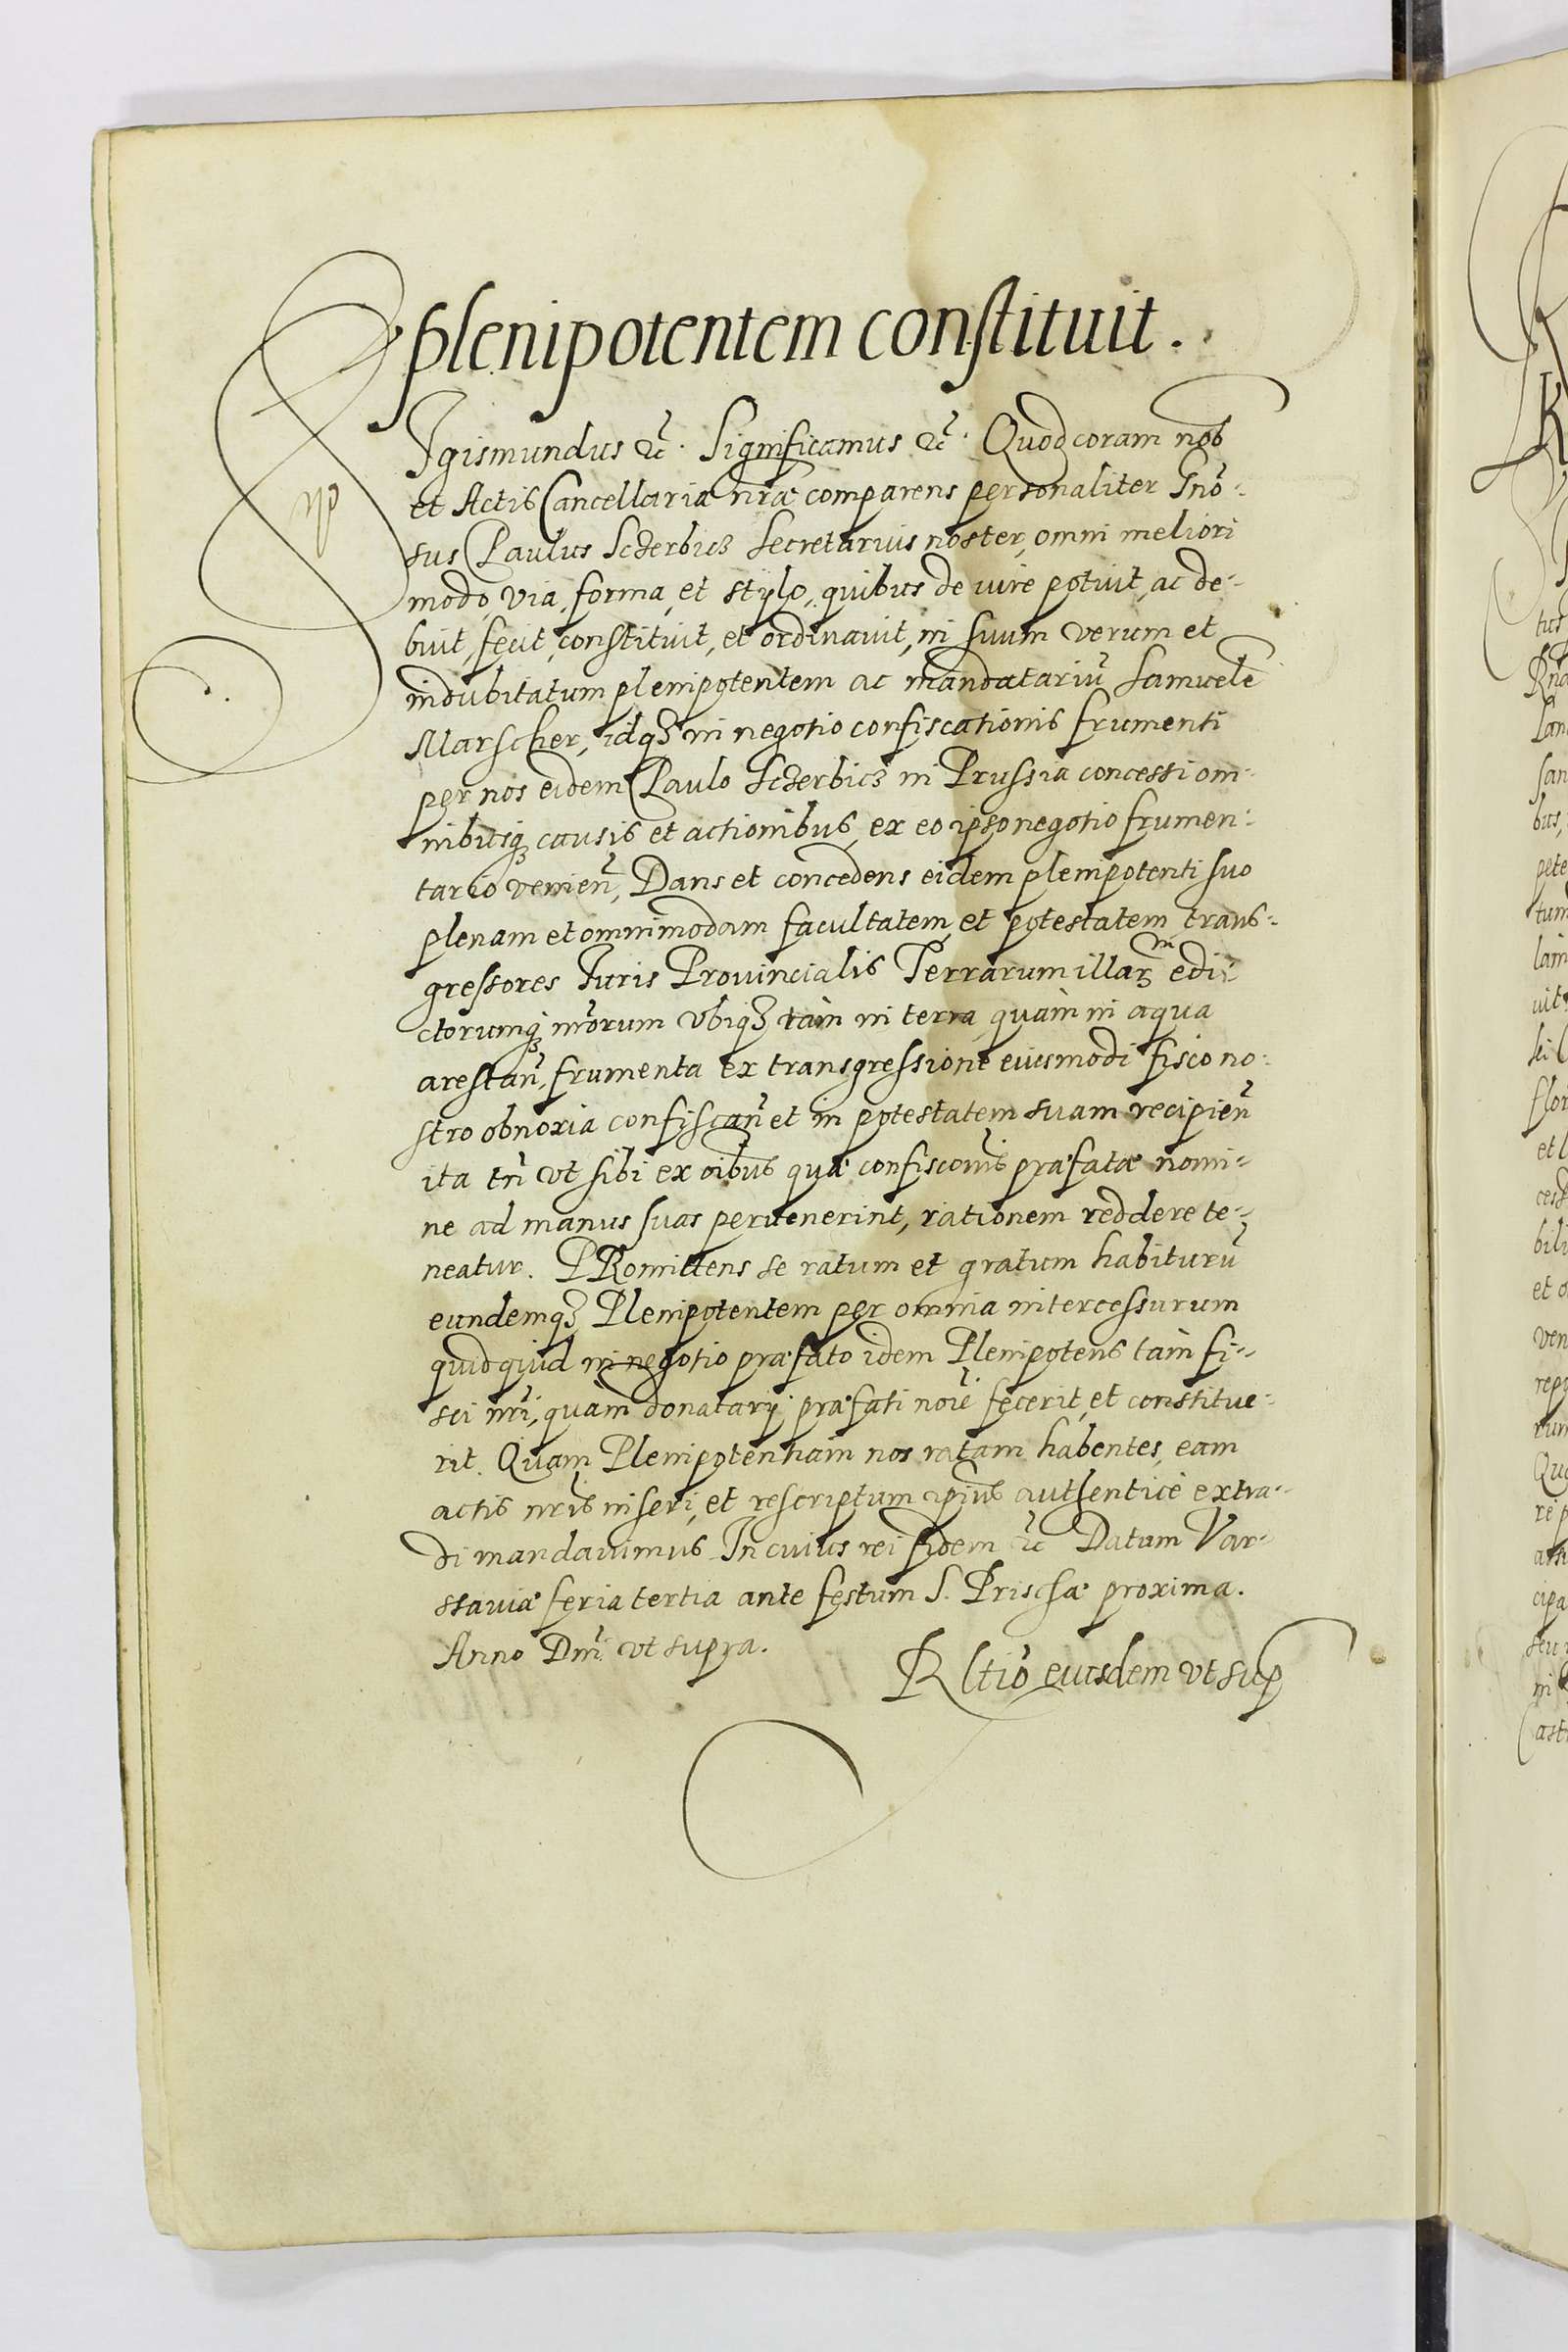 plenipotentem constituit.
Sigismundus ec. Significamus ec. Quod coram nob
et Actis Cancellariæ nræ comparens personaliter Gnō-
sus Paulus Sczerbicz Secretarius noster, omni meliori
modo, via, forma, et stylo, quibus de iure potuit, ac de-
buit, fecit, constituit, et ordinauit, in suum verum et
indubitatum plenipotentem ac mandatariū Samuelē
Marscher, idq3 in negotio confiscationis frumenti
per nos eidem Paulo Sczerbicz in Prussia concessi om-
nibusq3 causis et actionibus, ex eo ipso negotio frumen-
tario venien̄, Dans et concedens eidem plenipotenti suo
plenam et omnimodam facultatem, et potestatem, trans-
gressores Iuris Prouincialis Terrarum illar3 in edi-
ctorumq3 nr̄orum vbiq3 tàm in terra, quàm in aqua
arestan̄, frumenta ex transgressione eiusmodi fisco no-
stro obnoxia confiscan̄ et in potestatem suam recipien̄
ita tn̄ vt sibi ex oībus quæ confiscōnis præfatæ nomi-
ne ad manus suas peruenerint, rationem reddere te-
neatur. PRomittens se ratum et gratum habiturū
eundemq3 Plenipotentem per omnia intercessurum
quidquid in negotio præfato idem Plenipotens tàm fi-
sci nr̄i, quàm donatarij præfati noīe fecerit, et constitue-
rit. Quam Plenipotentiam nos ratam habentes, eam
actis nr̄is inseri, et rescriptum ipsius authenticè extra-
di mandauimus. In cuius rei fidem ec Datum Var-
stauiæ feria tertia ante festum S. Priscæ proxima.
Anno Dn̄i vt supra.
Rltiō eiusdem vt sup